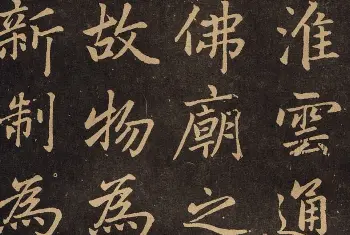 淮雲通
佛廟之
故物為
新制為